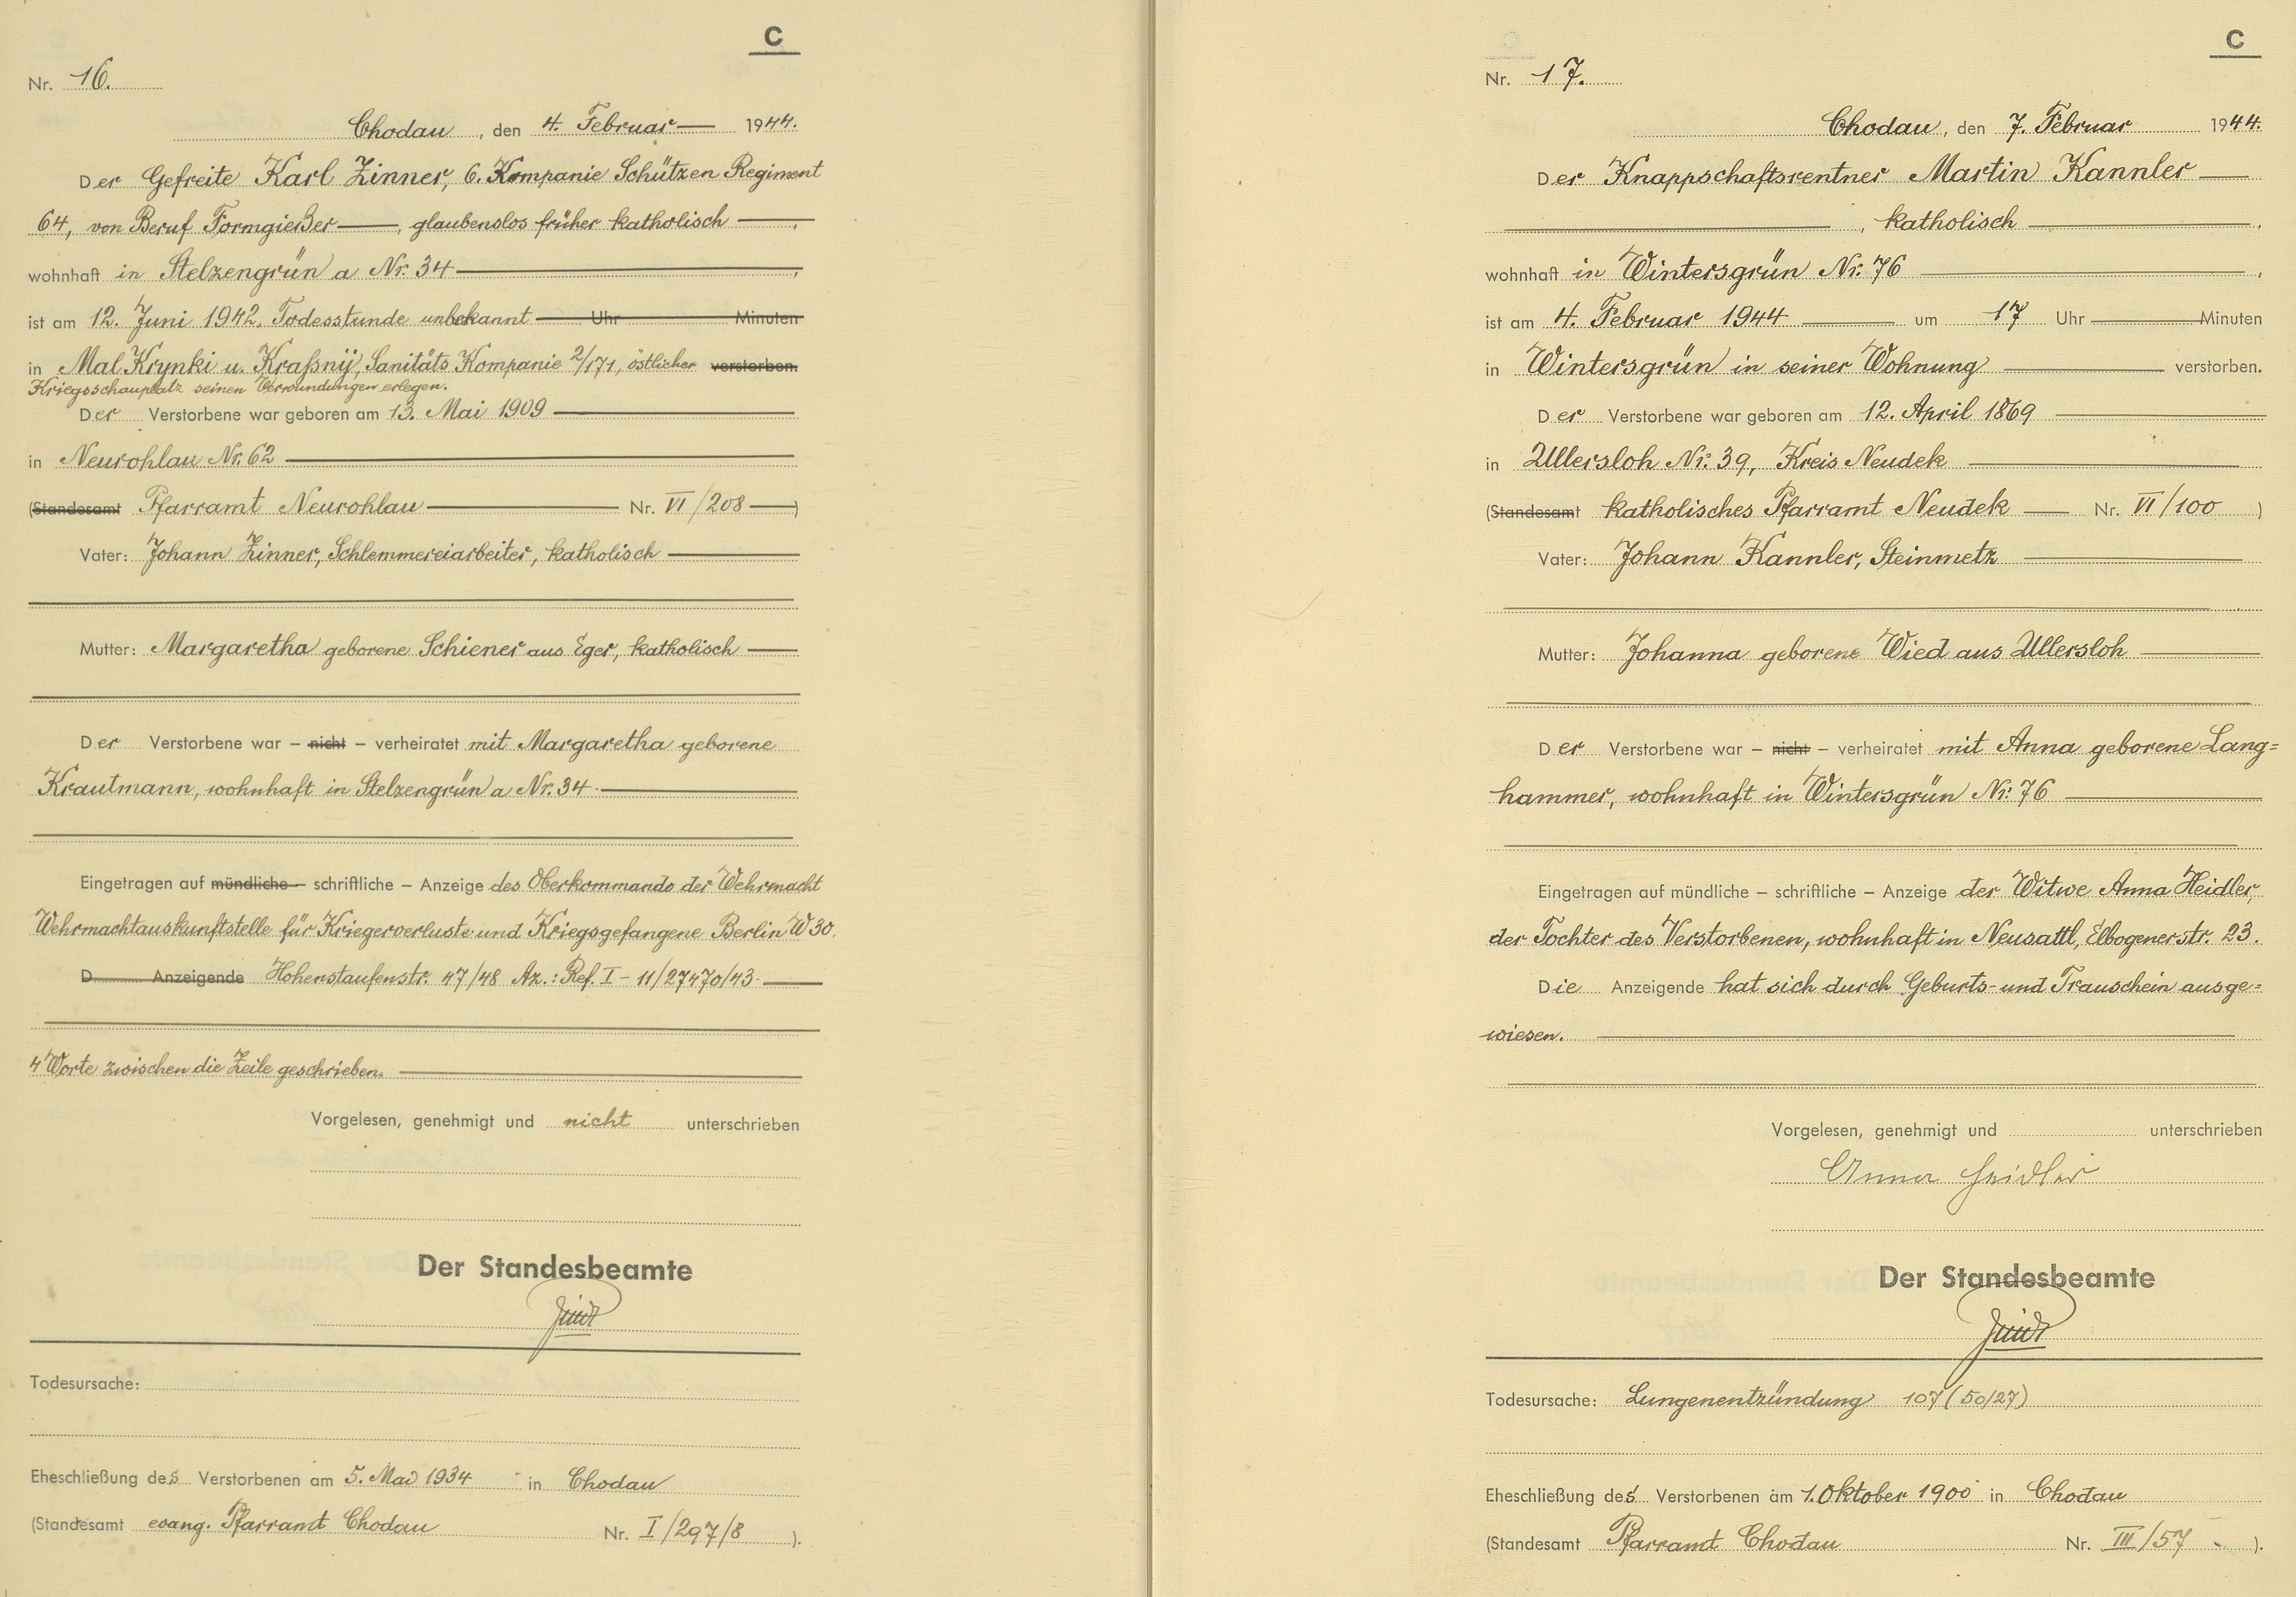 C
Nr. 16.
Chodau, den 4. Februar 1944.
Der Gefreite Karl Zinner, 6. Kompanie Schützen Regiment
64, von Beruf Formgießer, glaubenslos früher katholisch,
wohnhaft in Stelzengrün a Nr. 34,
ist am 12. Juni 1942. Todesstunde unbekannt Uhr Minuten
in Mal Krynki u. Kraßnij, Sanitäts Kompanie 2/171, östlicher verstorben.
Kriegsschauplatz seinen Verwundungen erlegen.
Der Verstorbene war geboren am 13. Mai 1909
in Neurohlau Nr. 62
(Standesamt Pfarramt Neurohlau Nr. VI/208)
Vater: Johann Zinner, Schlemmereiarbeiter, katholisch
Mutter: Margaretha geborene Schiener aus Eger, katholisch
Der Verstorbene war – nicht – verheiratet mit Margaretha geborene
Krautmann, wohnhaft in Stelzengrün a Nr. 34.
Eingetragen auf mündliche – schriftliche – Anzeige des Oberkommando der Wehrmacht
Wehrmachtauskunftstelle für Kriegerverluste und Kriegsgefangene Berlin W 30.
D Anzeigende Hohenstaufenstr. 47/48 Az.: Ref. I – 11/27470/43.
4 Worte zwischen die Zeile geschrieben.
Vorgelesen, genehmigt und nicht unterschrieben
Der Standesbeamte
Todesursache:
Eheschließung des Verstorbenen am 5. Mai 1934 in Chodau
(Standesamt evang. Pfarramt Chodau Nr. I/297/8).
C
Nr. 17.
Chodau, den 7. Februar 1944.
Der Knappschaftsrentner Martin Kannler
, katholisch,
wohnhaft in Wintersgrün Nr. 76,
ist am 4. Februar 1944 um 17 Uhr Minuten
in Wintersgrün in seiner Wohnung verstorben.
Der Verstorbene war geboren am 12. April 1869
in Ullersloh Nr. 39, Kreis Neudek
(Standesamt katholisches Pfarramt Neudek Nr. VI/100)
Vater: Johann Kannler, Steinmetz
Mutter: Johanna geborene Wied aus Ullersloh
Der Verstorbene war – nicht – verheiratet mit Anna geborene Lang=
hammer, wohnhaft in Wintersgrün Nr. 76
Eingetragen auf mündliche – schriftliche – Anzeige der Witwe Anna Heidler,
der Tochter des Verstorbenen, wohnhaft in Neusattl, Elbogenerstr. 23.
Die Anzeigende hat sich durch Geburts- und Trauschein ausge=
wiesen.
Vorgelesen, genehmigt und unterschrieben
Anna Heidler
Der Standesbeamte
Todesursache: Lungenentzündung 107 (50/27)
Eheschließung des Verstorbenen am 1. Oktober 1900 in Chodau
(Standesamt Pfarramt Chodau Nr. III/57).